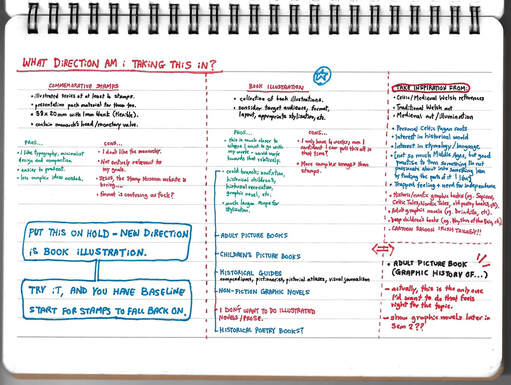 WHAT DIRECTION AM I TAKING THIS IN?
COMMEMORATIVE STAMPS
• illustrated series of at least 6 stamps.
• presentation pack material for them too.
• contain monarch's head/monetary value.
PROS...
• I like typography, minimalist
design and composition.
• easier to product.
• less complex ideas needed.
CONS...
• I don't like the monarchy.
• Not entirely relevant to
my goals.
• the Stamp Museum website is
• format is confusing as fuck?
PUT THIS ON HOLD - NEW DIRECTION
IS BOOK ILLUSTRATION.
TRY IT, AND YOU HAVE BASELINE
START FOR STAMPS TO FALL BACK ON.
BOOK ILLUSTRATION
• collection of book illustrations.
• consider target audience, format,
layout, appropriate stylization, etc.
PROS...
• this is much closer to
where I want to go with
my work - could work
towards that relatively.
• could branch: nonfiction,
historical children's,
historical recreation,
graphic novel, etc.
• much larger scope for
stylization.
CONS...
• I only have 6 weeks, can
I can pull this off in
that time?
• More complex to manage than
stamps.
ADULT PICTURE BOOKS
CHILDREN'S PICTURE BOOKS
HISTORICAL GUIDES
compendiums, dictionaries, pictorial atlases, visual journalism
NON-FICTION GRAPHIC NOVELS
I DON'T WANT TO DO ILLUSTRATED
NOVELS/PROSE.
HISTORICAL POETRY BOOKS?
TAKE INSPIRATION FROM:
• Celtic/Medieval Welsh references
• Traditional Welsh art
• Medieval art/illumination
• Personal Celtic Pagan roots
• Interest in historical world
• Interest in etymology/language
• (not so much Middle Ages, but good
practise to turn something I'm not
passionate about into something I am
by finding the parts of it I like)
• Stopped feeling a need for independence
• CARTOON SALOON IRISH TRILOGY!!
• ADULT PICTURE BOOK
(GRAPHIC HISTORY OF...)
- actually, this is the only one
I'd want to do that feels
right for the topic.
- show graphic novels later in
Sem 2??